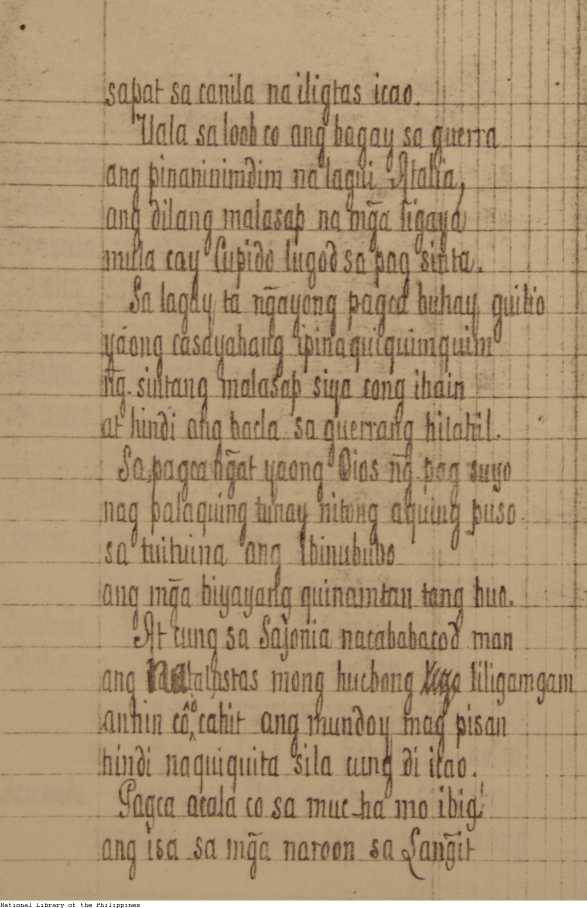 sapat sa canila na iligtas icao.
Uala sa loob co ang bagay sa guerra
ang pinaninimdim na lagui Atalia,
ang dilang malasap na mg̃a ligaya
mula cay Cupido lugod sa pag sinta.
Sa lagay ta ng̃ayong pagca buhay guilio
yaong casayahang ipinaquiquimquim
ng̃. sintang malasap siya cong ihain
at hindi ang bacla sa guerrang hilahil.
Sa pagca hg̃at yaong Dios ng̃ pag suyo
nag palaquing tunay nitong aquing puso.
sa tuituina ang ibinububo
ang mg̃a biyayang quinamtan tang buo.
At cung sa Sajonia nacababacod man
ang natalastas mong hucbong liligamgam
anhin có, cahit ang mundoy mag pisan
hindi naquiquita sila cung di icao.
Pagca acala co sa muc-ha mo ibig!
ang isa sa mg̃a naroon sa Lang̃it
National Library of the Philippines